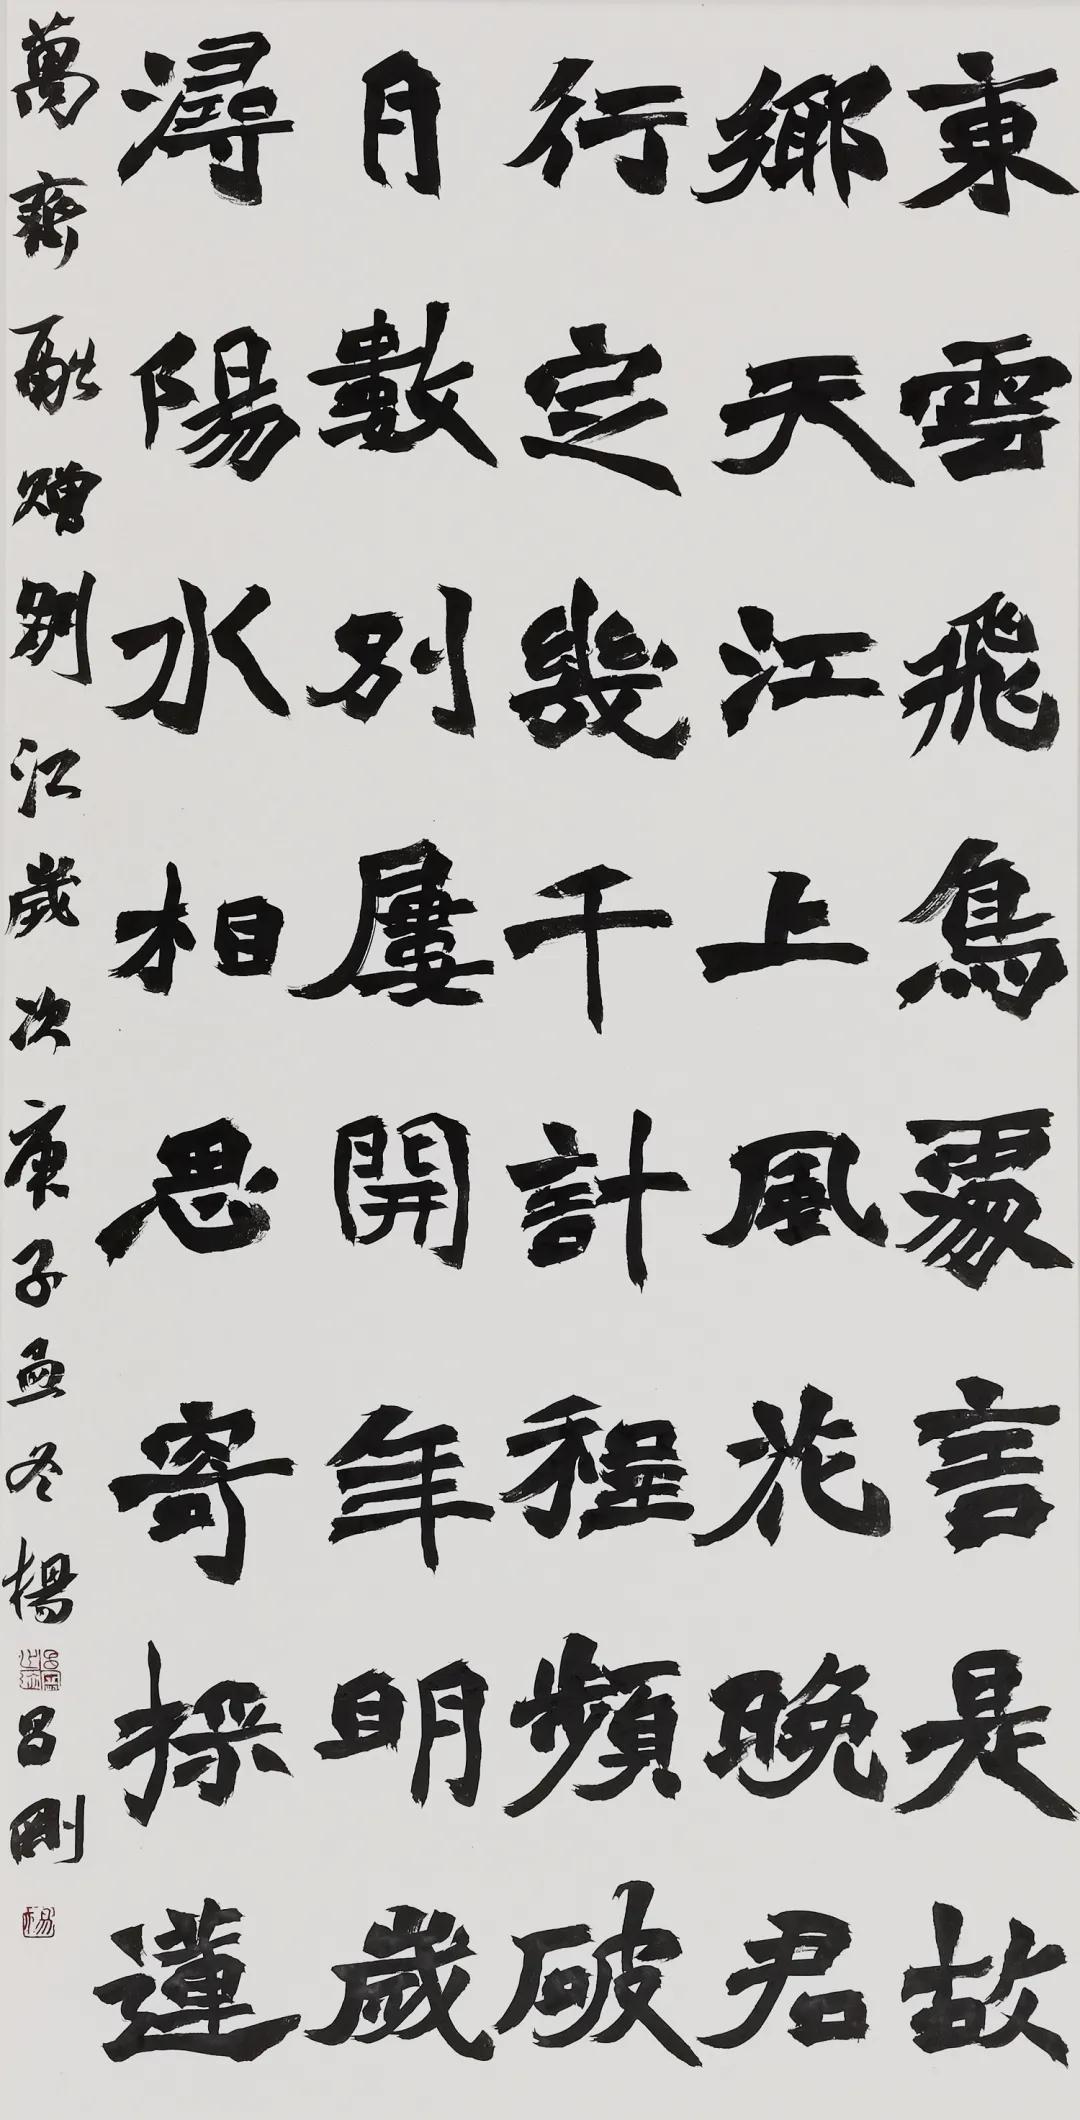 東雲飛鳥處言是故
鄉天江上風花晚君
行定幾千計程頻破
月數別屢開年明歲
潯陽水相思寄採蓮
萬齊融贈別江歲次庚子孟冬楊呂剛